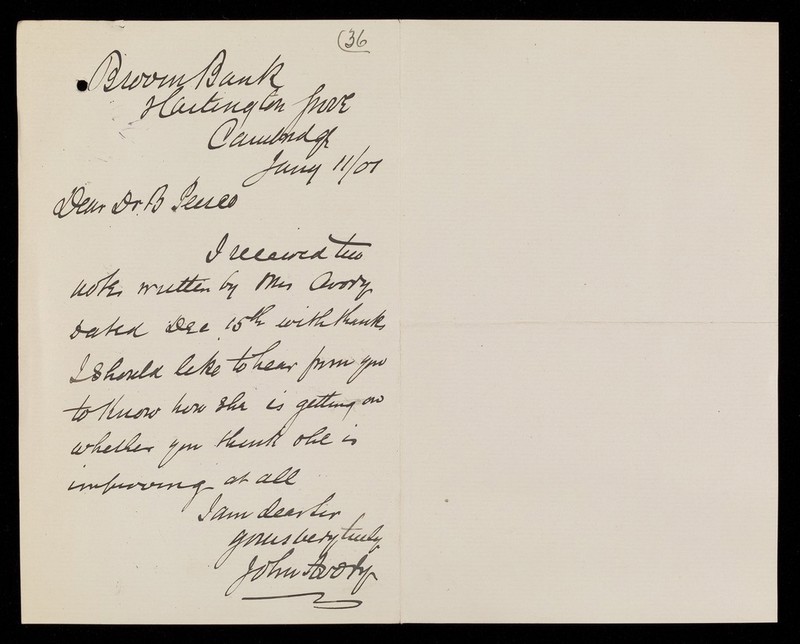 (36
Broom Bank
Hartington Grove
Cambridge
Jany 11/01
Dear Dr. B
I received two
notes written by Mrs Avory
Dated Dec 15th with thanks
I should like to hear from you
to know how she is getting on
whether you think she is
improving at all
I am dear Sir
yours very truly
John Avory